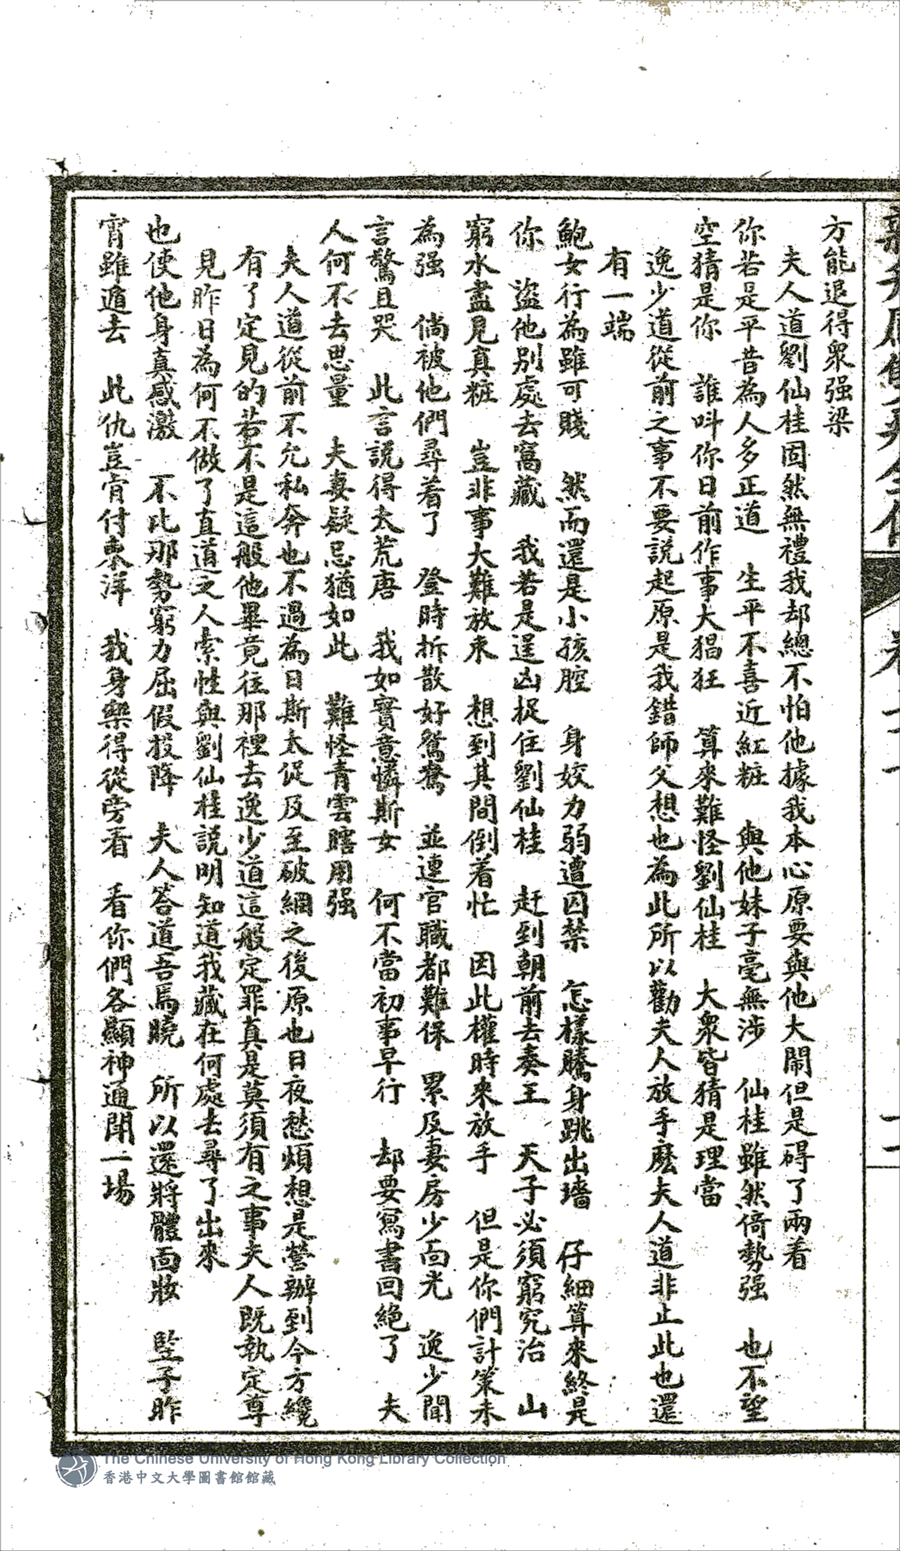 方能退得衆强梁
夫人道劉仙桂固然無禮我却總不怕他據我本心原要與他大閙但是碍了兩看
你若是平昔為人多正道　生平不喜近紅粧　與他妹子毫無涉　仙桂雖然倚勢强　也不望
空猜是你　誰呌你日前作事大猖狂　算來難怪劉仙桂　大衆皆猜是理當
逸少道從前之事不要説起原是我錯師父想也為此所以勸夫人放手麽夫人道非止此也還
有一端
鮑女行為雖可賤　然而還是小孩腔　身姣力弱遭囚禁　怎樣騰身跳出墻　仔細算來終是
你　盜他别處去窩藏　我若是逞凶捉住劉仙桂　赶到朝前去奏王　天子必須窮究治　山
窮水盡見真粧　豈非事大難放來　想到其間倒着忙　因此權時來放手　但是你們計策未
為强　倘被他們尋着了　登時拆散好鴛鴦　並連官職都難保　累及妻房少面光　逸少聞
言驚且哭　此言説得太荒唐　我如實意憐斯女　何不當初事早行　却要寫書回絶了　夫
人何不去思量　夫妻疑忌猶如此　難怪青雲瞎用强
夫人道從前不允私奔也不過為日斯太促及至破綱之後原也日夜愁煩想是營辦到今方纔
有了定見的若不是這般他畢竟往那裡去逸少道這般定罪真是莫須有之事夫人既執定尊
見昨日為何不做了直道之人索性與劉仙桂説明知道我藏在何處去尋了出來
也使他身真感激　不比那勢窮力屈假投降　夫人答道吾焉曉　所以還將體面妝　壁子昨
宵雖遁去　此仇豈肯付東洋　我身樂得從旁看　看你們各顯神通閙一塲
The Chinese University of Hong Kong Library Collection
香港中文大學圖書館館藏